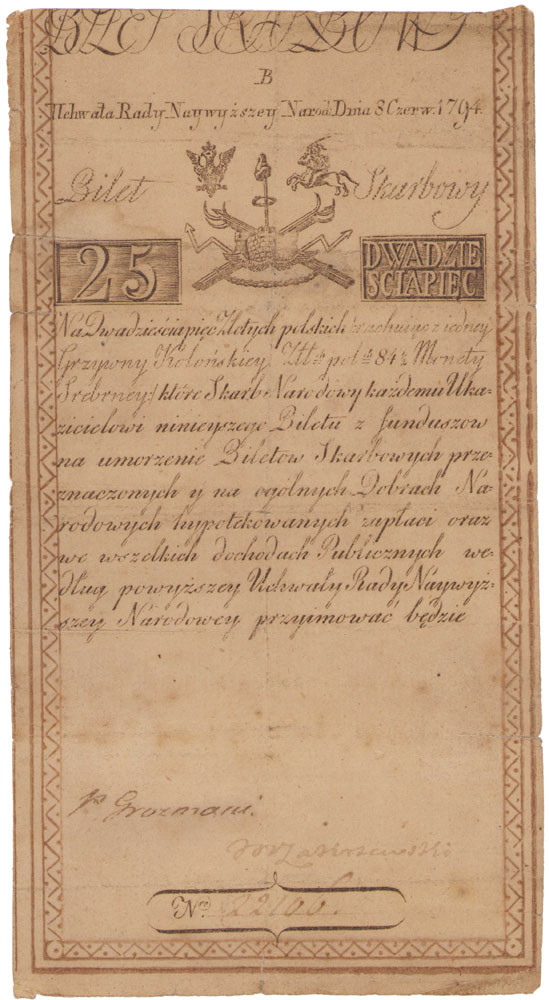 BILET SKARBOWY
B
Uchwała Rady Naywyższey Narod. Dnia 8 Czerw. 1794.
Bilet Skarbowy
25 DWADZIE
SCIAPIĘC
Na Dwadzieściapięć Złotych polskich rachuiąc z iedney
Grzywny Kolońskiey Złł: pol: 84½ Monety
Srebrney: które Skarb Narodowy każdemu Uka-
zicielowi ninieyszego Biletu z funduszow
na umorzenie Biletow Skarbowych prze-
znaczonych y na ogólnych Dobrach Na-
rodowych hypotekowanych zapłaci oraz
we wszelkich dochodach Publicznych we-
dług powyższey Uchwały Rady Naywyż-
szey Narodowey przyimować będzie
P Grozmani.
Zakrzewski
No. 22166.